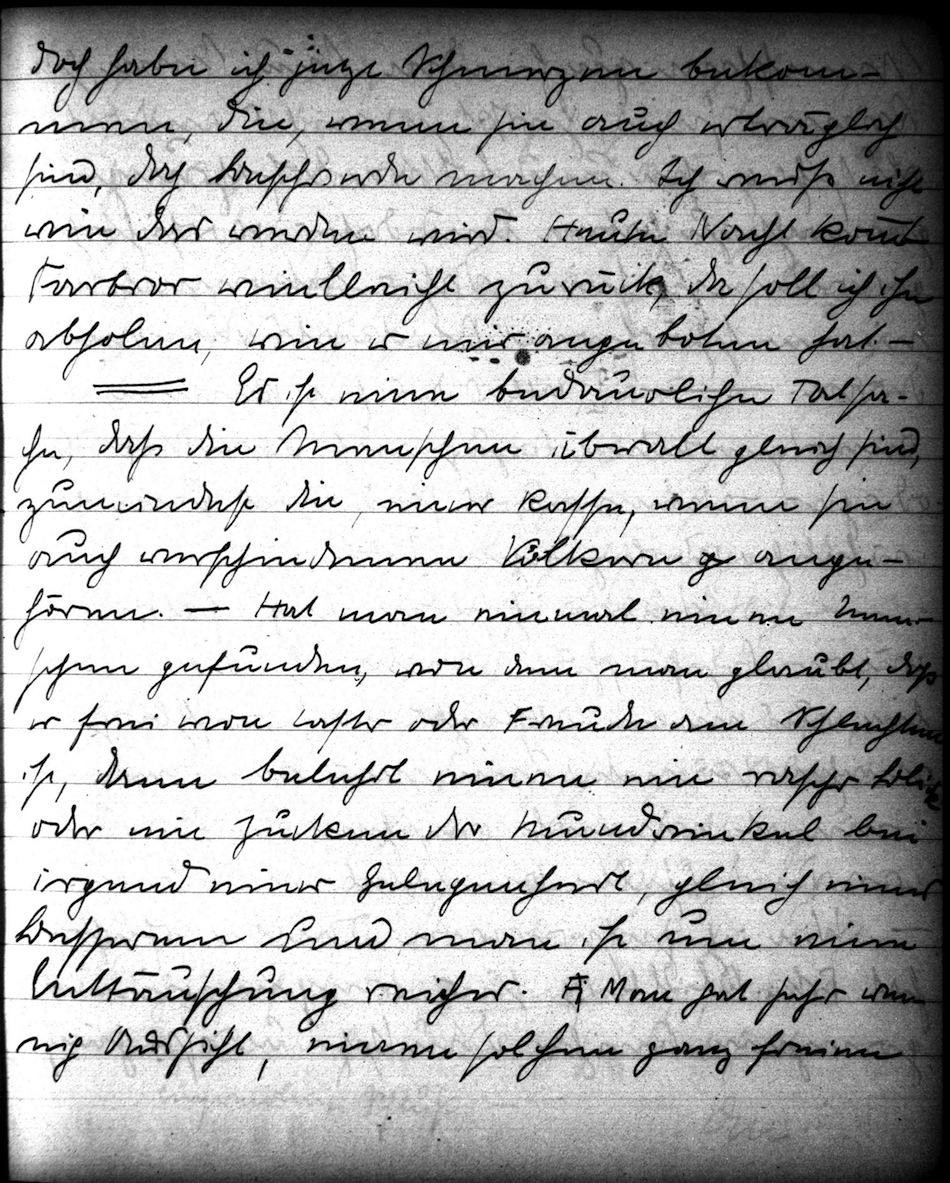 doch habe ich jetzt Schmerzen bekom-
men, die, wenn sie auch erträglich
sind, doch Beschwerde machen. Ich weiß nicht
wie das werden wird. Heute Nacht kommt
Farbror vielleicht zurück, da soll ich ihn
abholen, wie er mir angeboten hat. —
Es ist eine bedauerliche Tatsa-
che, daß die Menschen überall gleich sind,
zumindest die, einer Rasse, wenn sie
auch verschiedenen Völkern ange-
hören. — Hat man einmal einen Men-
schen gefunden, von dem man glaubt, daß
er frei von Laster oder Freude am Schlechten
ist, dann belehrt einen ein rascher Blick
oder ein Zucken der Mundwinkel bei
irgend einer Gelegenheit, gleich eines
Besseren und man ist um eine
Enttäuschung reicher. Man hat sehr we-
nig Aussicht, einen solchen ganz freien